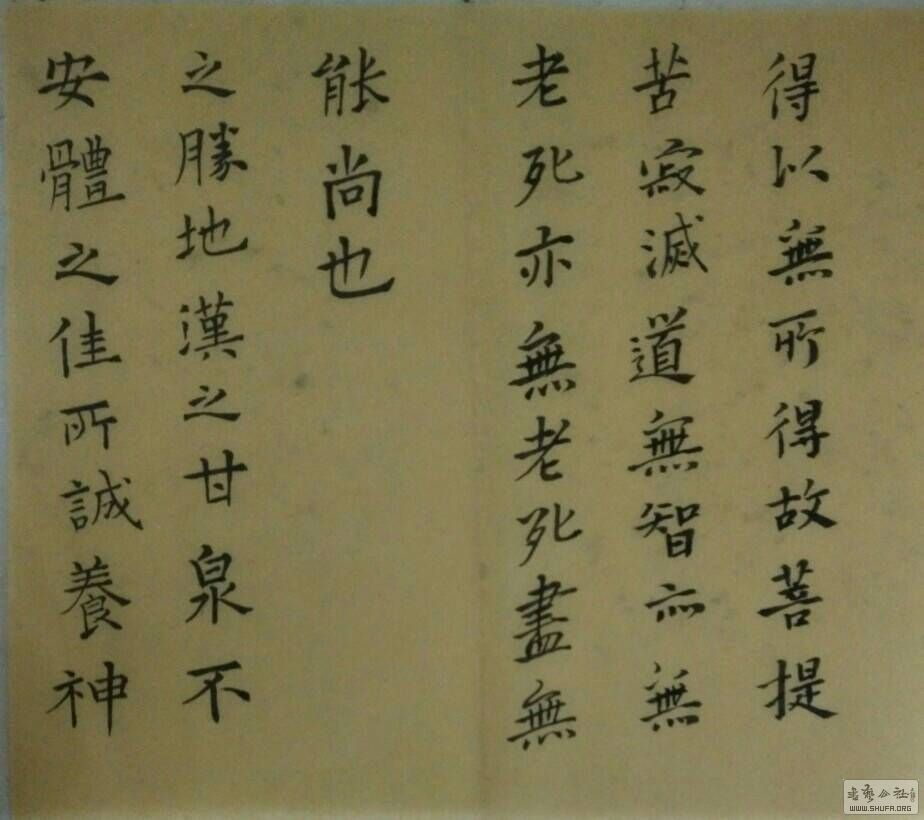 安體之佳所誠養神
之勝地漢之甘泉不
能尚也
老死亦無老死盡無
苦寂滅道無智亦無
得以無所得故菩提
WWW.SHUFA.ORG